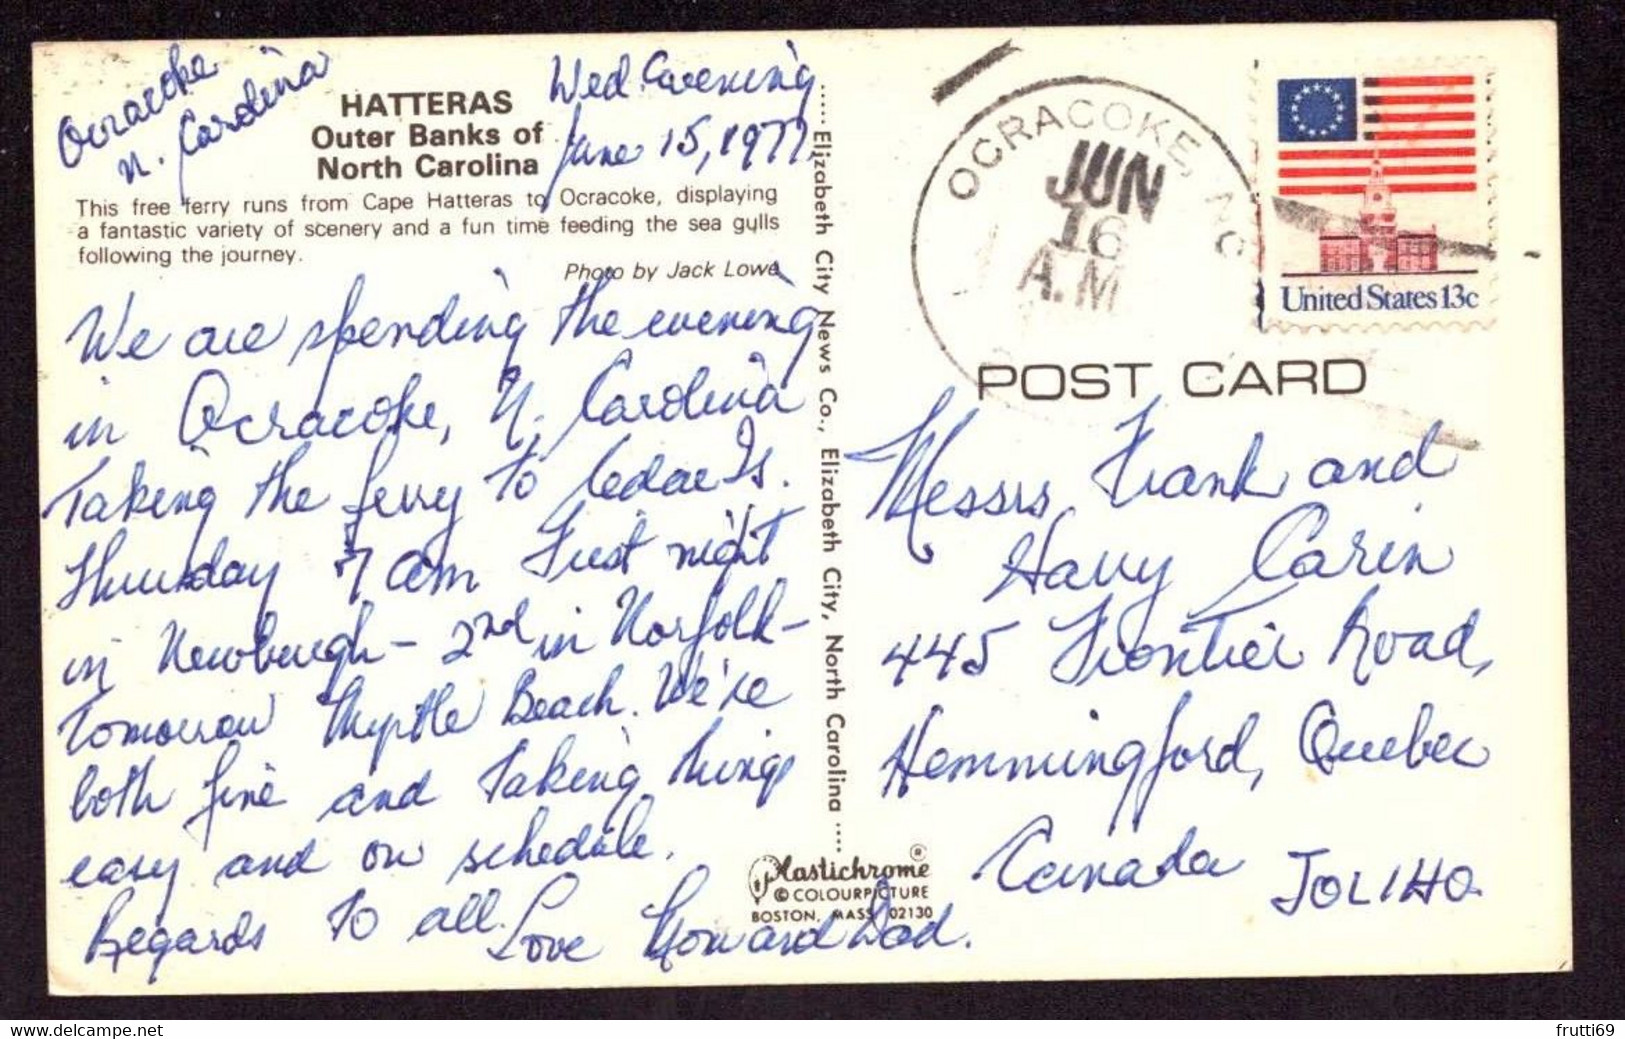 Ocracoke
N. Carolina
Wed. Evening
June 15, 1977
HATTERAS
Outer Banks of
North Carolina
This free ferry runs from Cape Hatteras to Ocracoke, displaying
a fantastic variety of scenery and a fun time feeding the sea gulls
following the journey.
Photo by Jack Lowe
We are spending the evening
in Ocracoke, N. Carolina
Taking the ferry to Cedar Is.
Thursday 7 am First night
in Newburgh - 2nd in Norfolk -
Tomorrow Myrtle Beach. We're
both fine and taking things
easy and on schedule.
Regards to all. Love Howard Dad.
..... Elizabeth City News Co., Elizabeth City, North Carolina ....
Plastichrome ®
© COLOURPICTURE
BOSTON, MASS 02130
OCRACOKE, NC
JUN
16
A.M
United States 13c
POST CARD
Messrs Frank and
Harry Carin
445 Frontier Road,
Hemmingford, Quebec
Canada JOL1HO.
frutti69